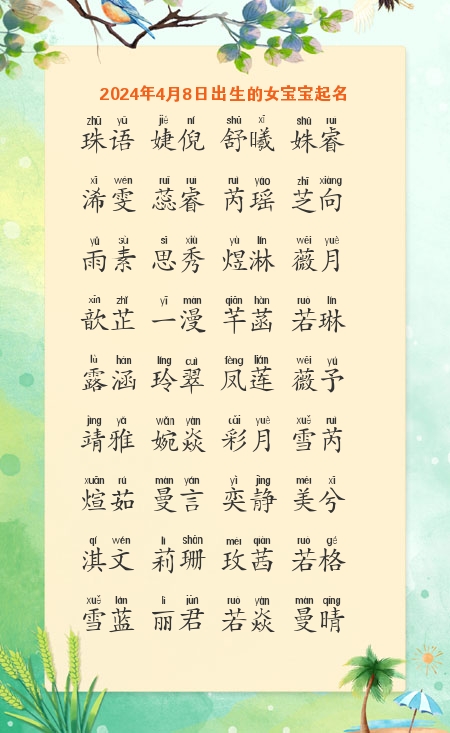 2024年4月8日出生的女宝宝起名
zhū yǔ jié ní shū xī shū ruì
珠语 婕倪 舒曦 姝睿
xī wén ruǐ ruì ruì yáo zhī xiàng
浠雯 蕊睿 芮瑶 芝向
yǔ sù sī xiù yù lín wēi yuè
雨素 思秀 煜淋 薇月
xīn zhǐ yī màn qiān hàn ruò lín
歆芷 一漫 芊菡 若琳
lù hán líng cuì fèng lián wēi yǔ
露涵 玲翠 凤莲 薇予
jìng yǎ wǎn yàn cǎi yuè xuě ruì
靖雅 婉焱 彩月 雪芮
xuān rú màn yán yì jìng měi xī
煊茹 曼言 奕静 美兮
qí wén lì shān méi qiàn ruò gé
淇文 莉珊 玫茜 若格
xuě lán lì jūn ruò yàn màn qíng
雪蓝 丽君 若焱 曼晴